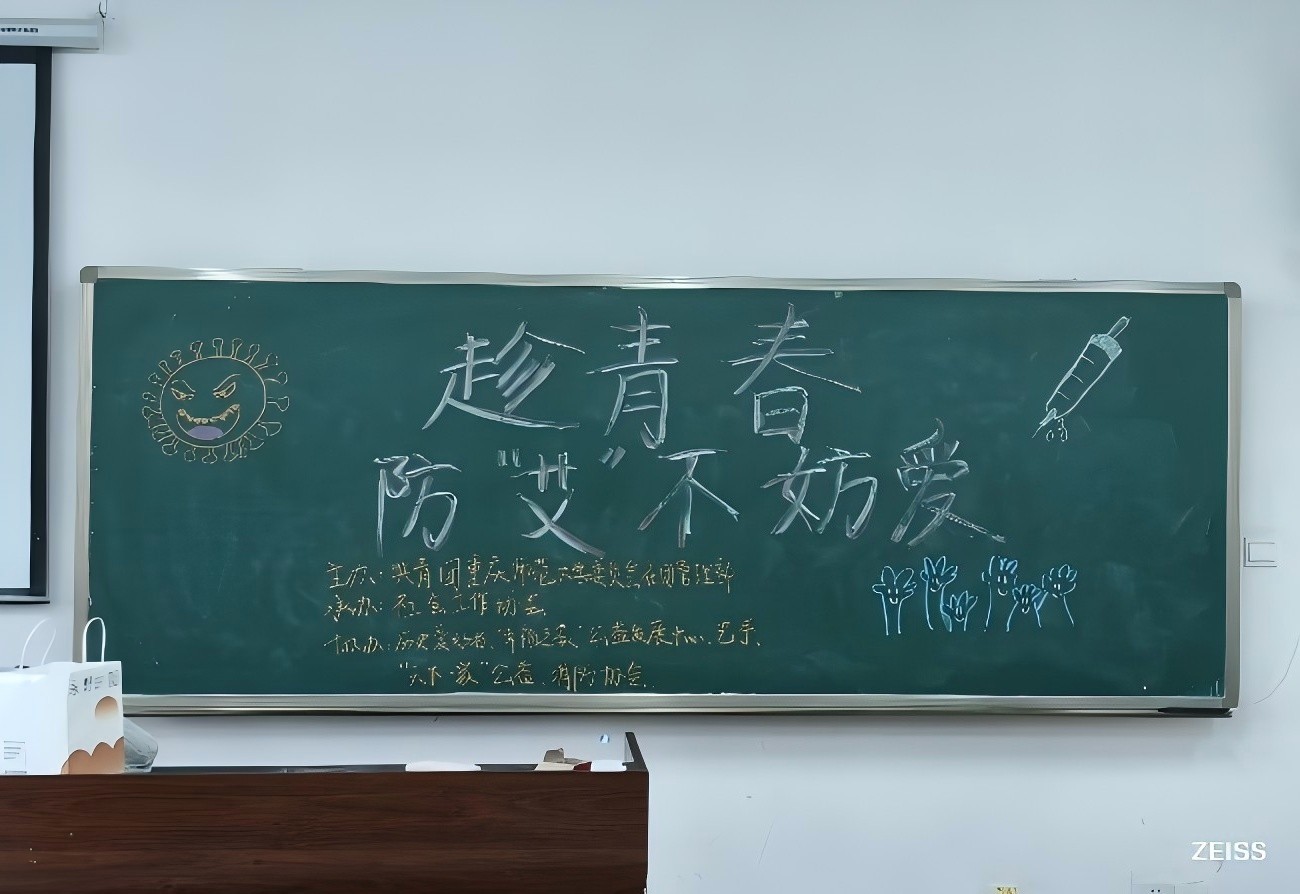 趁青春
防“艾”不妨爱
主办：共青团重庆师范大学委员会社团管理部
承办：社会工作协会
协办：历史爱好者、公益发展中心、艺手、
“大下一家”公益、消防协会
ZEISS